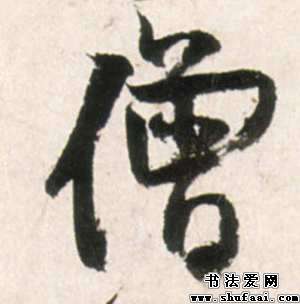 僧
书法爱网
www.shufaai.com